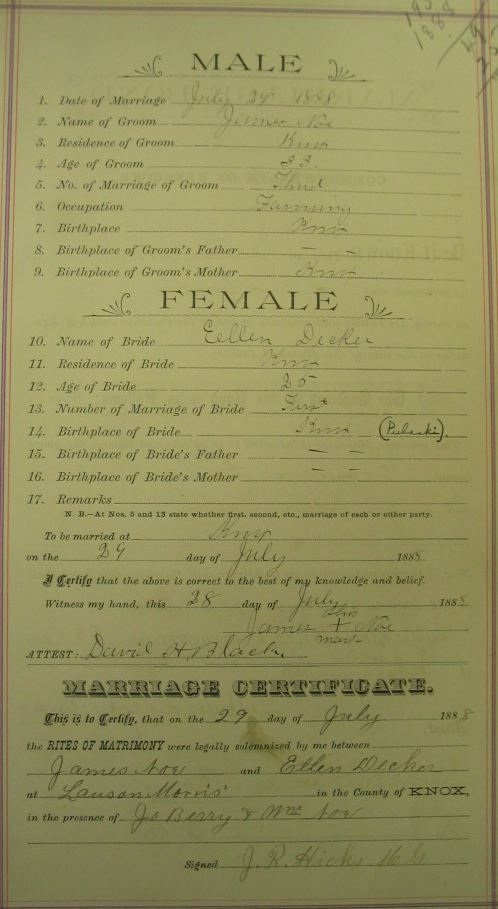 1888
MALE
1. Date of Marriage July 29 1888
2. Name of Groom James Noe
3. Residence of Groom Knox
4. Age of Groom 33
5. No. of Marriage of Groom Third
6. Occupation Farming
7. Birthplace Knox
8. Birthplace of Groom's Father — —
9. Birthplace of Groom's Mother Knox
FEMALE
10. Name of Bride Eellen Decker
11. Residence of Bride Knox
12. Age of Bride 25
13. Number of Marriage of Bride First
14. Birthplace of Bride Knox (Pulaski).
15. Birthplace of Bride's Father — —
16. Birthplace of Bride's Mother — —
17. Remarks
N. B.—At Nos. 5 and 13 state whether first, second, etc., marriage of each or either party.
To be married at Knox
on the 29 day of July 1888
I Certify that the above is correct to the best of my knowledge and belief.
Witness my hand, this 28 day of July 1888
his
James + Noe
mark
ATTEST: David H Black
MARRIAGE CERTIFICATE.
This is to Certify, that on the 29 day of July 1888
the RITES OF MATRIMONY were legally solemnized by me between
James Noe and Ellen Decker
at Lauson Morris' in the County of KNOX,
in the presence of Jo Berry & Wm Noe
Signed J. R. Hicks M G